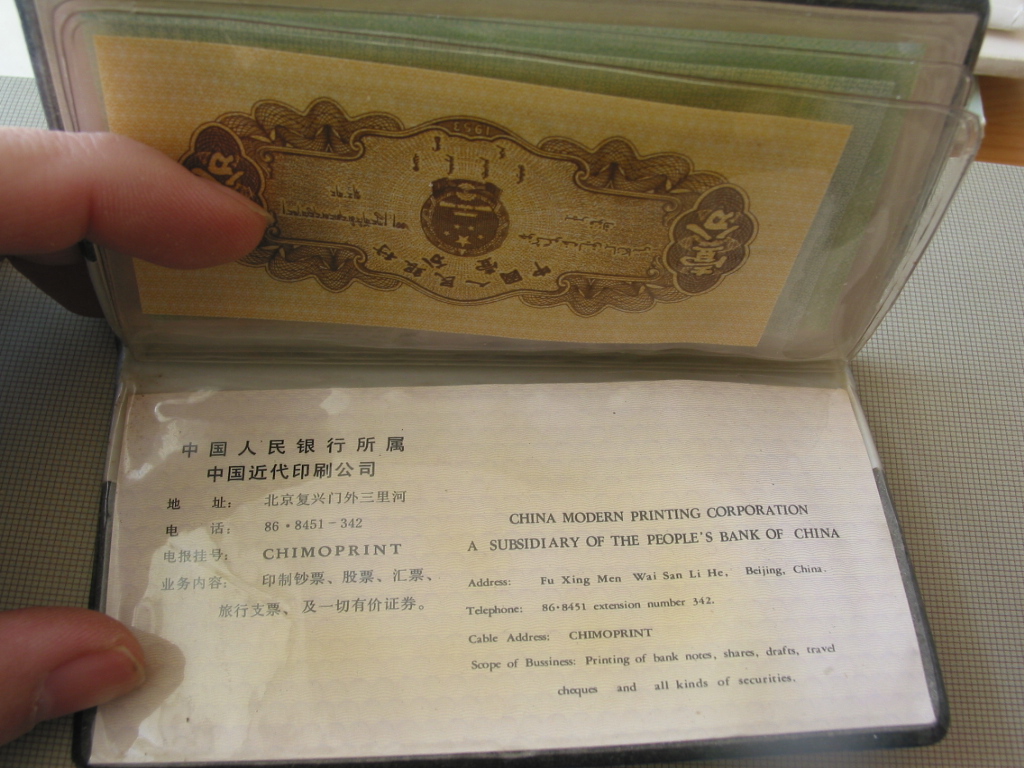 1953
壹分
壹分
中国人民银行
中国人民银行所属
中国近代印刷公司
地 址: 北京复兴门外三里河
电 话: 86·8451-342
电报挂号: CHIMOPRINT
业务内容: 印制钞票、股票、汇票、
旅行支票、及一切有价证券。
CHINA MODERN PRINTING CORPORATION
A SUBSIDIARY OF THE PEOPLE'S BANK OF CHINA
Address: Fu Xing Men Wai San Li He, Beijing, China.
Telephone: 86·8451 extension number 342.
Cable Address: CHIMOPRINT
Scope of Bussiness: Printing of bank notes, shares, drafts, travel
cheques and all kinds of securities.